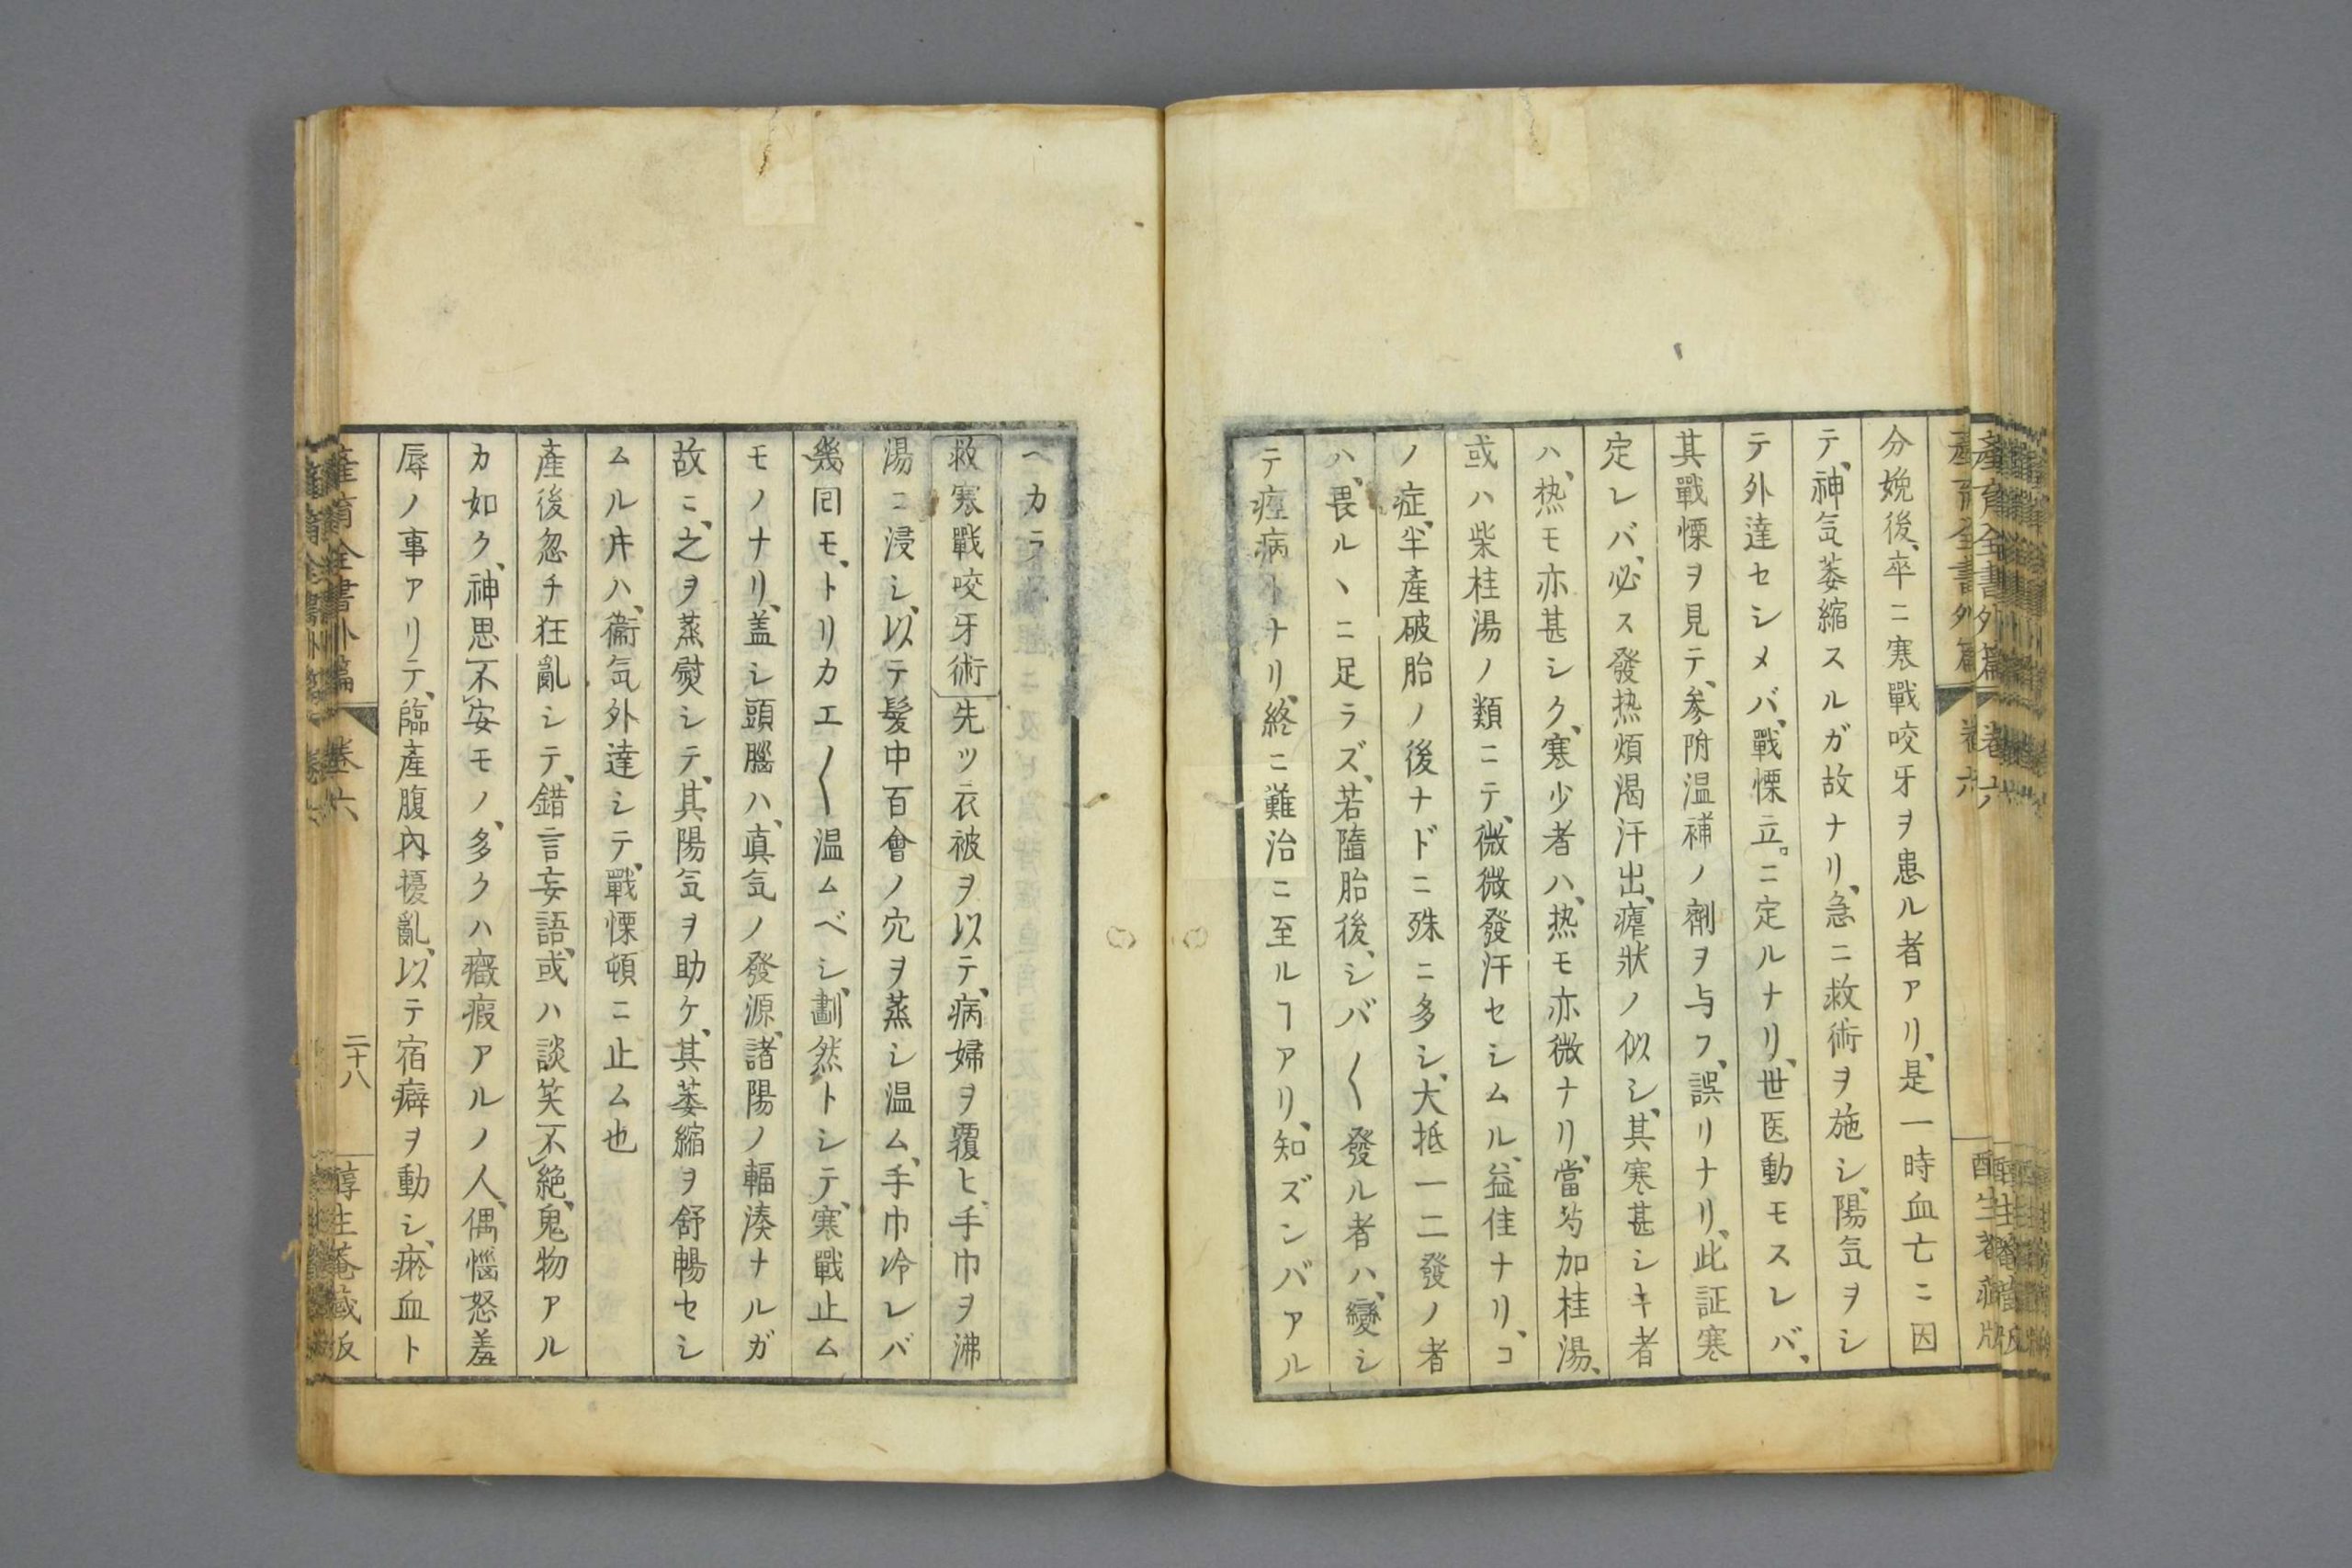 産育全書外篇 卷六 酉生菴藏版
分娩後、卒ニ寒戰咬牙ヲ患ル者アリ、是一時血亡ニ因
テ、神気萎縮スルガ故ナリ、急ニ救術ヲ施シ、陽気ヲシ
テ外達セシメバ、戰慄立。ニ定ルナリ、世医動モスレバ、
其戰慄ヲ見テ、参附温補ノ劑ヲ与フ、誤リナリ、此証寒
定レバ、必ス發热煩渴汗出、瘧狀ノ似シ、其寒甚シキ者
ハ、热モ亦甚シク、寒少者ハ、热モ亦微ナリ、當芍加桂湯、
或ハ柴桂湯ノ類ニテ、微微發汗セシムル、益佳ナリ、コ
ノ症、半產破胎ノ後ナドニ殊ニ多シ、大抵一二發ノ者
ハ、畏ルヽニ足ラズ、若隨胎後、シバ〱發ル者ハ、變シ
テ痙病トナリ、終ニ難治ニ至ルヿアリ、知ズンバアル
ヘカラ
救寒戰咬牙術 先ツ衣被ヲ以テ、病婦ヲ覆ヒ、手巾ヲ沸
湯ニ浸シ、以テ髮中百會ノ穴ヲ蒸シ温ム、手巾冷レバ
幾回モ、トリカエ〱温ムベシ、劃然トシテ、寒戰止ム
モノナリ、盖シ頭腦ハ、真気ノ發源、諸陽ノ輻湊ナルガ
故ニ、之ヲ蒸熨シテ、其陽気ヲ助ケ、其萎縮ヲ舒暢セシ
ムル𪜈ハ、衞気外達シテ、戰慄頓ニ止ム也
產後忽チ狂亂シテ、錯言妄語、或ハ談笑不絶、鬼物アル
カ如ク、神思不安モノ、多クハ癥瘕アルノ人、偶惱怒羞
辱ノ事アリテ、臨產腹內擾亂、以テ宿癖ヲ動シ、瘀血ト
産育全書外篇 卷六 二十八 酉生菴藏版